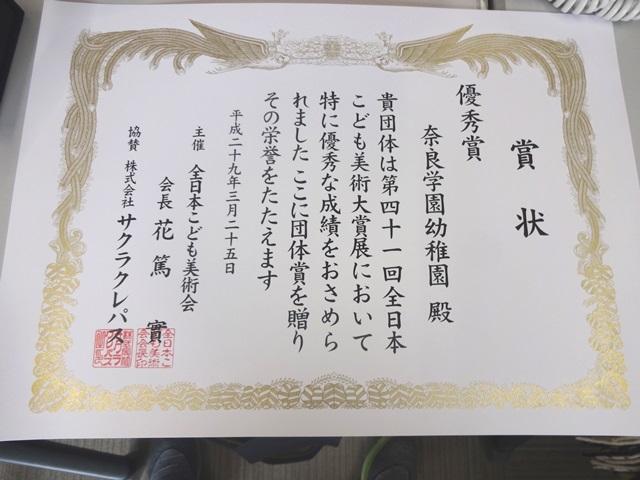 賞状
優秀賞
奈良学園幼稚園 殿
貴団体は第四十一回全日本
こども美術大賞展において
特に優秀な成績をおさめら
れました ここに団体賞を贈り
その栄誉をたたえます
平成二十九年三月二十五日
主催 全日本こども美術会
会長 花篤 實
協賛 株式会社 サクラクレパス